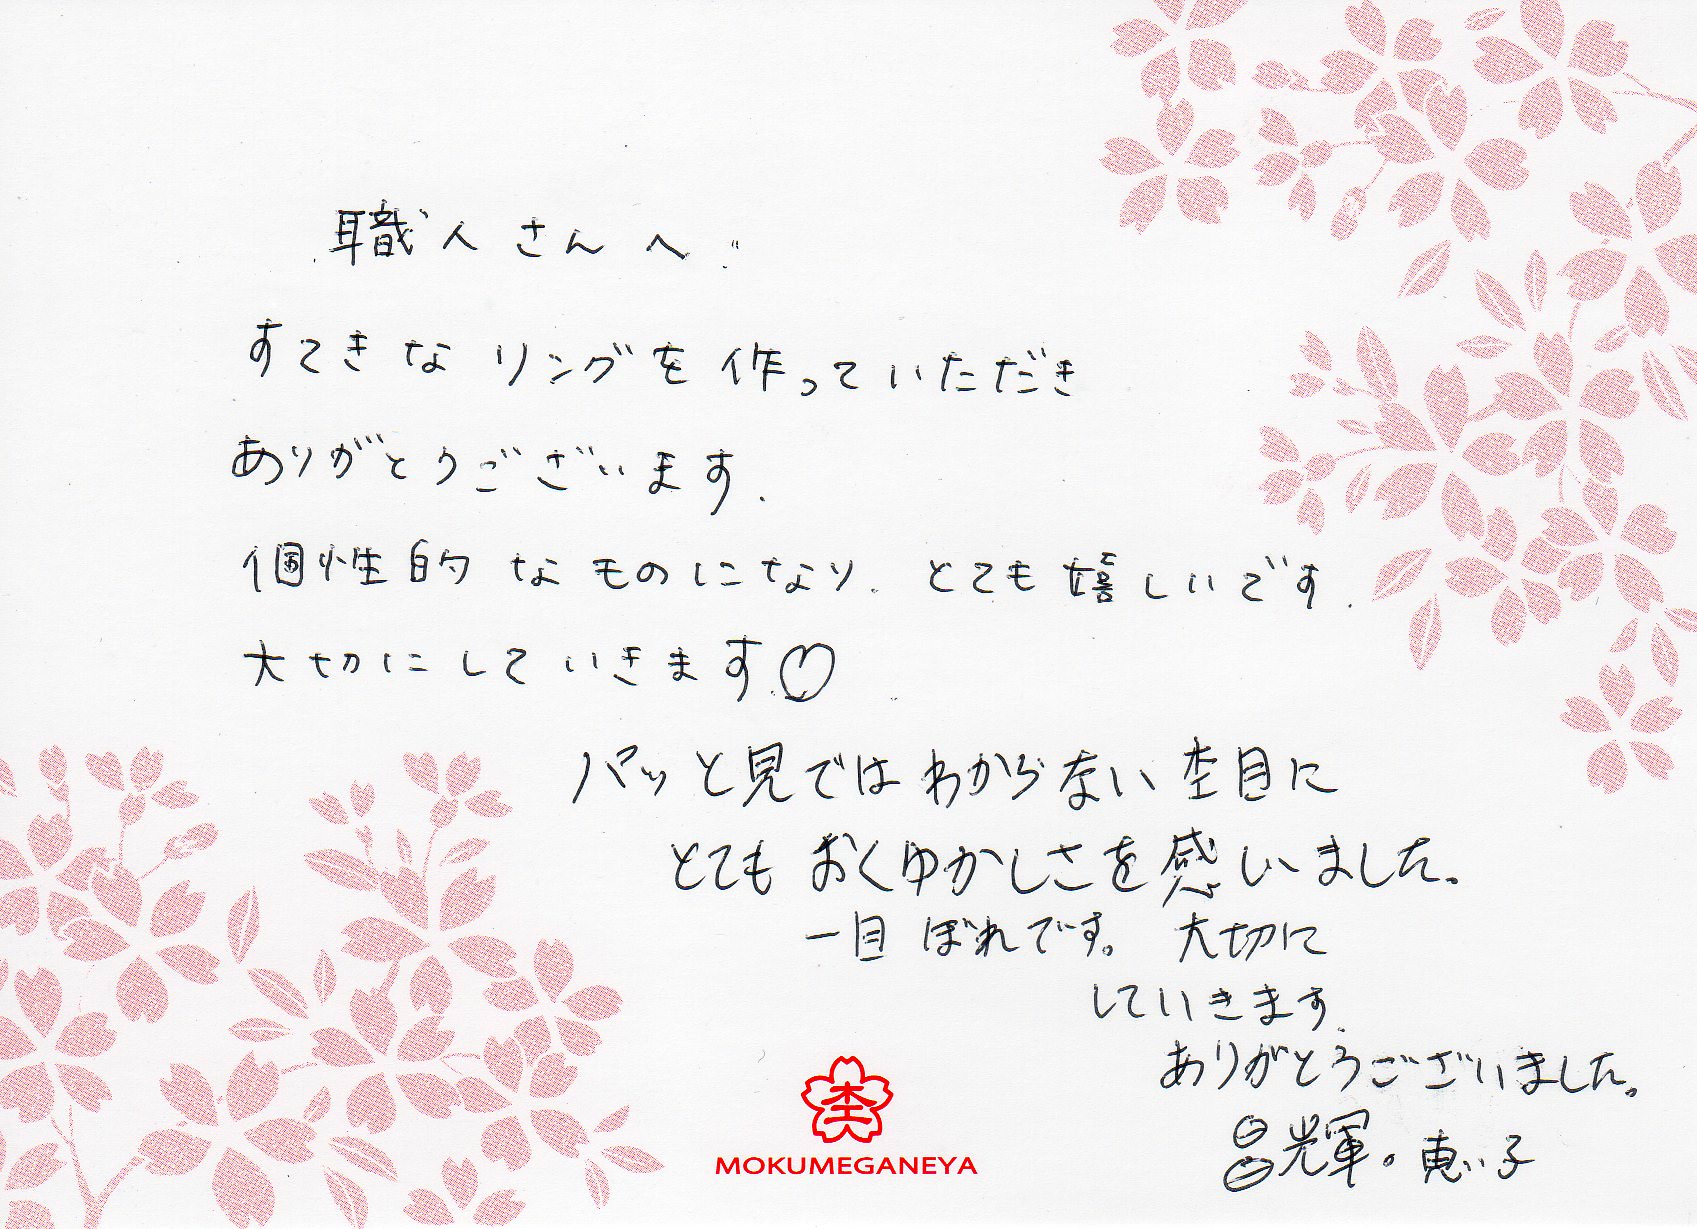 職人さんへ
すてきなリングを作っていただき
ありがとうございます.
個性的なものになり.とても嬉しいです.
大切にしていきます♡
パッと見ではわからない杢目に
とてもおくゆかしさを感いました。
一目ぼれです。大切に
していきます.
ありがとうございました。
昌輝。恵い子
杢
MOKUMEGANEYA